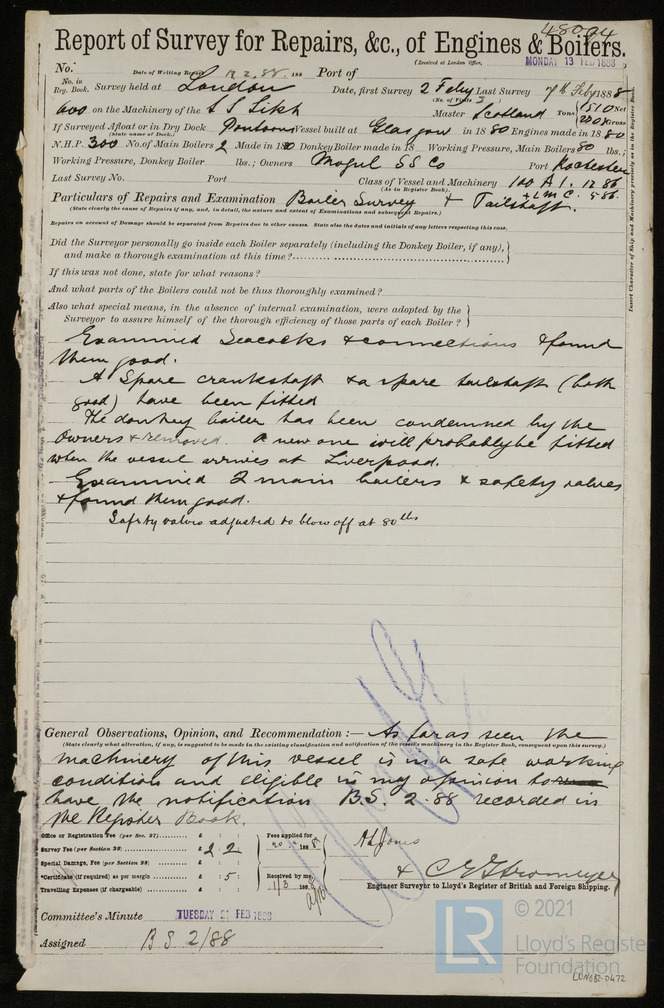 48094
Report of Survey for Repairs, &c., of Engines & Boilers.
(Received at London Office, MONDAY 13 FEB 1888
No. Date of Writing Report 12.2.88. 188 Port of
No. in Reg. Book. Survey held at London Date, first Survey 2 Feby Last Survey 7th Feby 1888
(No. of Visits 3
600 on the Machinery of the S S Sikh Master Scotland Tons 1510 Net 2208 Gross
If Surveyed Afloat or in Dry Dock Pontoons Vessel built at Glasgow in 1880 Engines made in 1880
(State name of Dock.)
N.H.P. 300 No. of Main Boilers 2 Made in 1880 Donkey Boiler made in 18 Working Pressure, Main Boilers 80 lbs.;
Working Pressure, Donkey Boiler lbs.; Owners Mogul SS Co Port Rochester
Last Survey No. Port Class of Vessel and Machinery 100 A 1. 12 86
(As in Register Book). + L M C. 5 86.
Particulars of Repairs and Examination Boiler Survey & Tailshaft.
(State clearly the cause of Repairs if any, and, in detail, the nature and extent of Examinations and subsequent Repairs.)
Repairs on account of Damage should be separated from Repairs due to other causes. State also the dates and initials of any letters respecting this case.
Did the Surveyor personally go inside each Boiler separately (including the Donkey Boiler, if any),
and make a thorough examination at this time?
If this was not done, state for what reasons?
And what parts of the Boilers could not be thus thoroughly examined?
Also what special means, in the absence of internal examination, were adopted by the
Surveyor to assure himself of the thorough efficiency of those parts of each Boiler?
Insert Character of Ship and Machinery precisely as in the Register Book.
Examined Seacocks & connections & found
them good.
A Spare crankshaft & a spare tailshaft (both
good) have been fitted
The donkey boiler has been condemned by the
Owners & removed. A new one will probably be fitted
when the vessel arrives at Liverpool.
Examined 2 main boilers & safety valves
& found them good.
Safety valves adjusted to blow off at 80 lbs
General Observations, Opinion, and Recommendation:— As far as seen the
(State clearly what alteration, if any, is suggested to be made in the existing classification and notification of the vessel's machinery in the Register Book, consequent upon this survey.)
machinery of this vessel is in a safe working
condition and eligible in my opinion to
have the notification B.S. 2.88 recorded in
the Register Book.
Office or Registration Fee (per Sec. 27) £ : : Fees applied for
Survey Fee (per Section 28) £ 2 : 2 188
Special Damage Fee (per Section 28) £ : :
*Certificate (if required) as per margin £ : 5 : Received by me,
Travelling Expenses (if chargeable) £ : : 1/3 1888
A L Jones
& C E Stromeyer
Engineer Surveyor to Lloyd's Register of British and Foreign Shipping.
Committee's Minute TUESDAY 21 FEB 1888
Assigned B S 2/88
© 2021
LR
Lloyd's Register
Foundation
LON682-0472